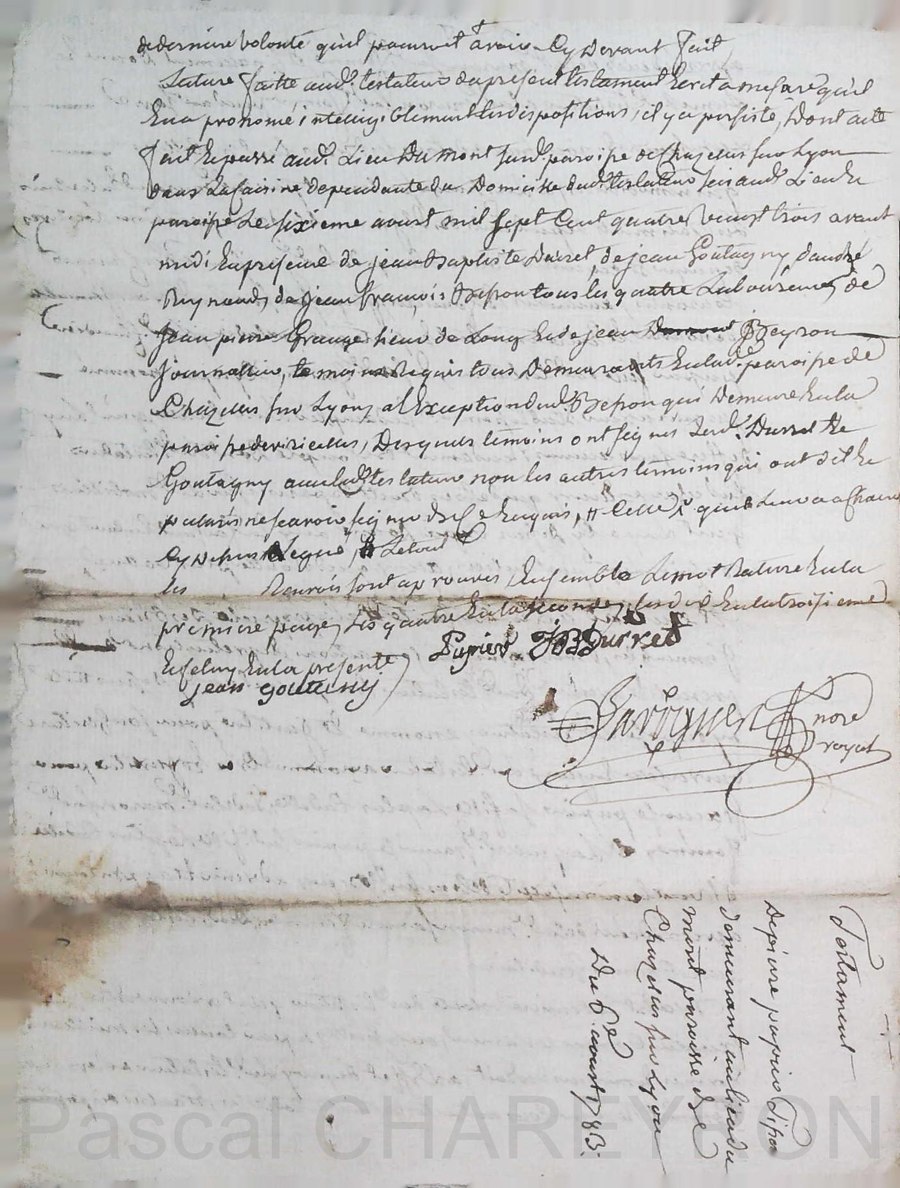 de derniere volonté quil pourroit avoir cy devant fait
Lature faitte aud. testateur du present testament Ecrit a mesure quil
En a pronomé inteligiblement les dispositions, il y a persisté, Dont acte
fait Et passé aud. Lieu Dumont susd. paroipe de Chazelles sur Lyon
dans La cuisine dependante du Domicille dud. testateur sis aud. Lieu Et
paroipe Le sixieme aoust mil sept Cent quatre vingt trois avant
midi En presence de jean Baptiste Durret, de jean Goutagny d'andré
Reynaud, de jean francois Besson tous les quatre Laboureurs, de
jean pierre Grange tieur de Long Et de jean Beyron
journallier, temoins Requis tous Demeurants En lad. paroipe de
Chazelles sur Lyon, a l'Exception dud. Besson qui Demeure En la
paroipe de viricelles, Desquels temoins ont signés Lesd. Durret Et
Goutagny avec Led. testateur non les autres temoins qui ont dit Ne
scavoir signer de ce Enquis, # Cette x qu'il Leur a a Chacun
Cy Dessus Legué # Le tout
les Renvois sont aprouvés Ensemble Le mot Rature En la
premiere page, Les quatre En la seconde, Les dix En la troisieme
Et celuy En la presente
Papier JB Durret
jean goutagny
nore
royal
Testament
De pierre papier Tipa
demeurant au lieu du
mont paroisse de
Chazelles sur Lyon
Du 6e. aoust 1783.
Pascal CHAREYRON